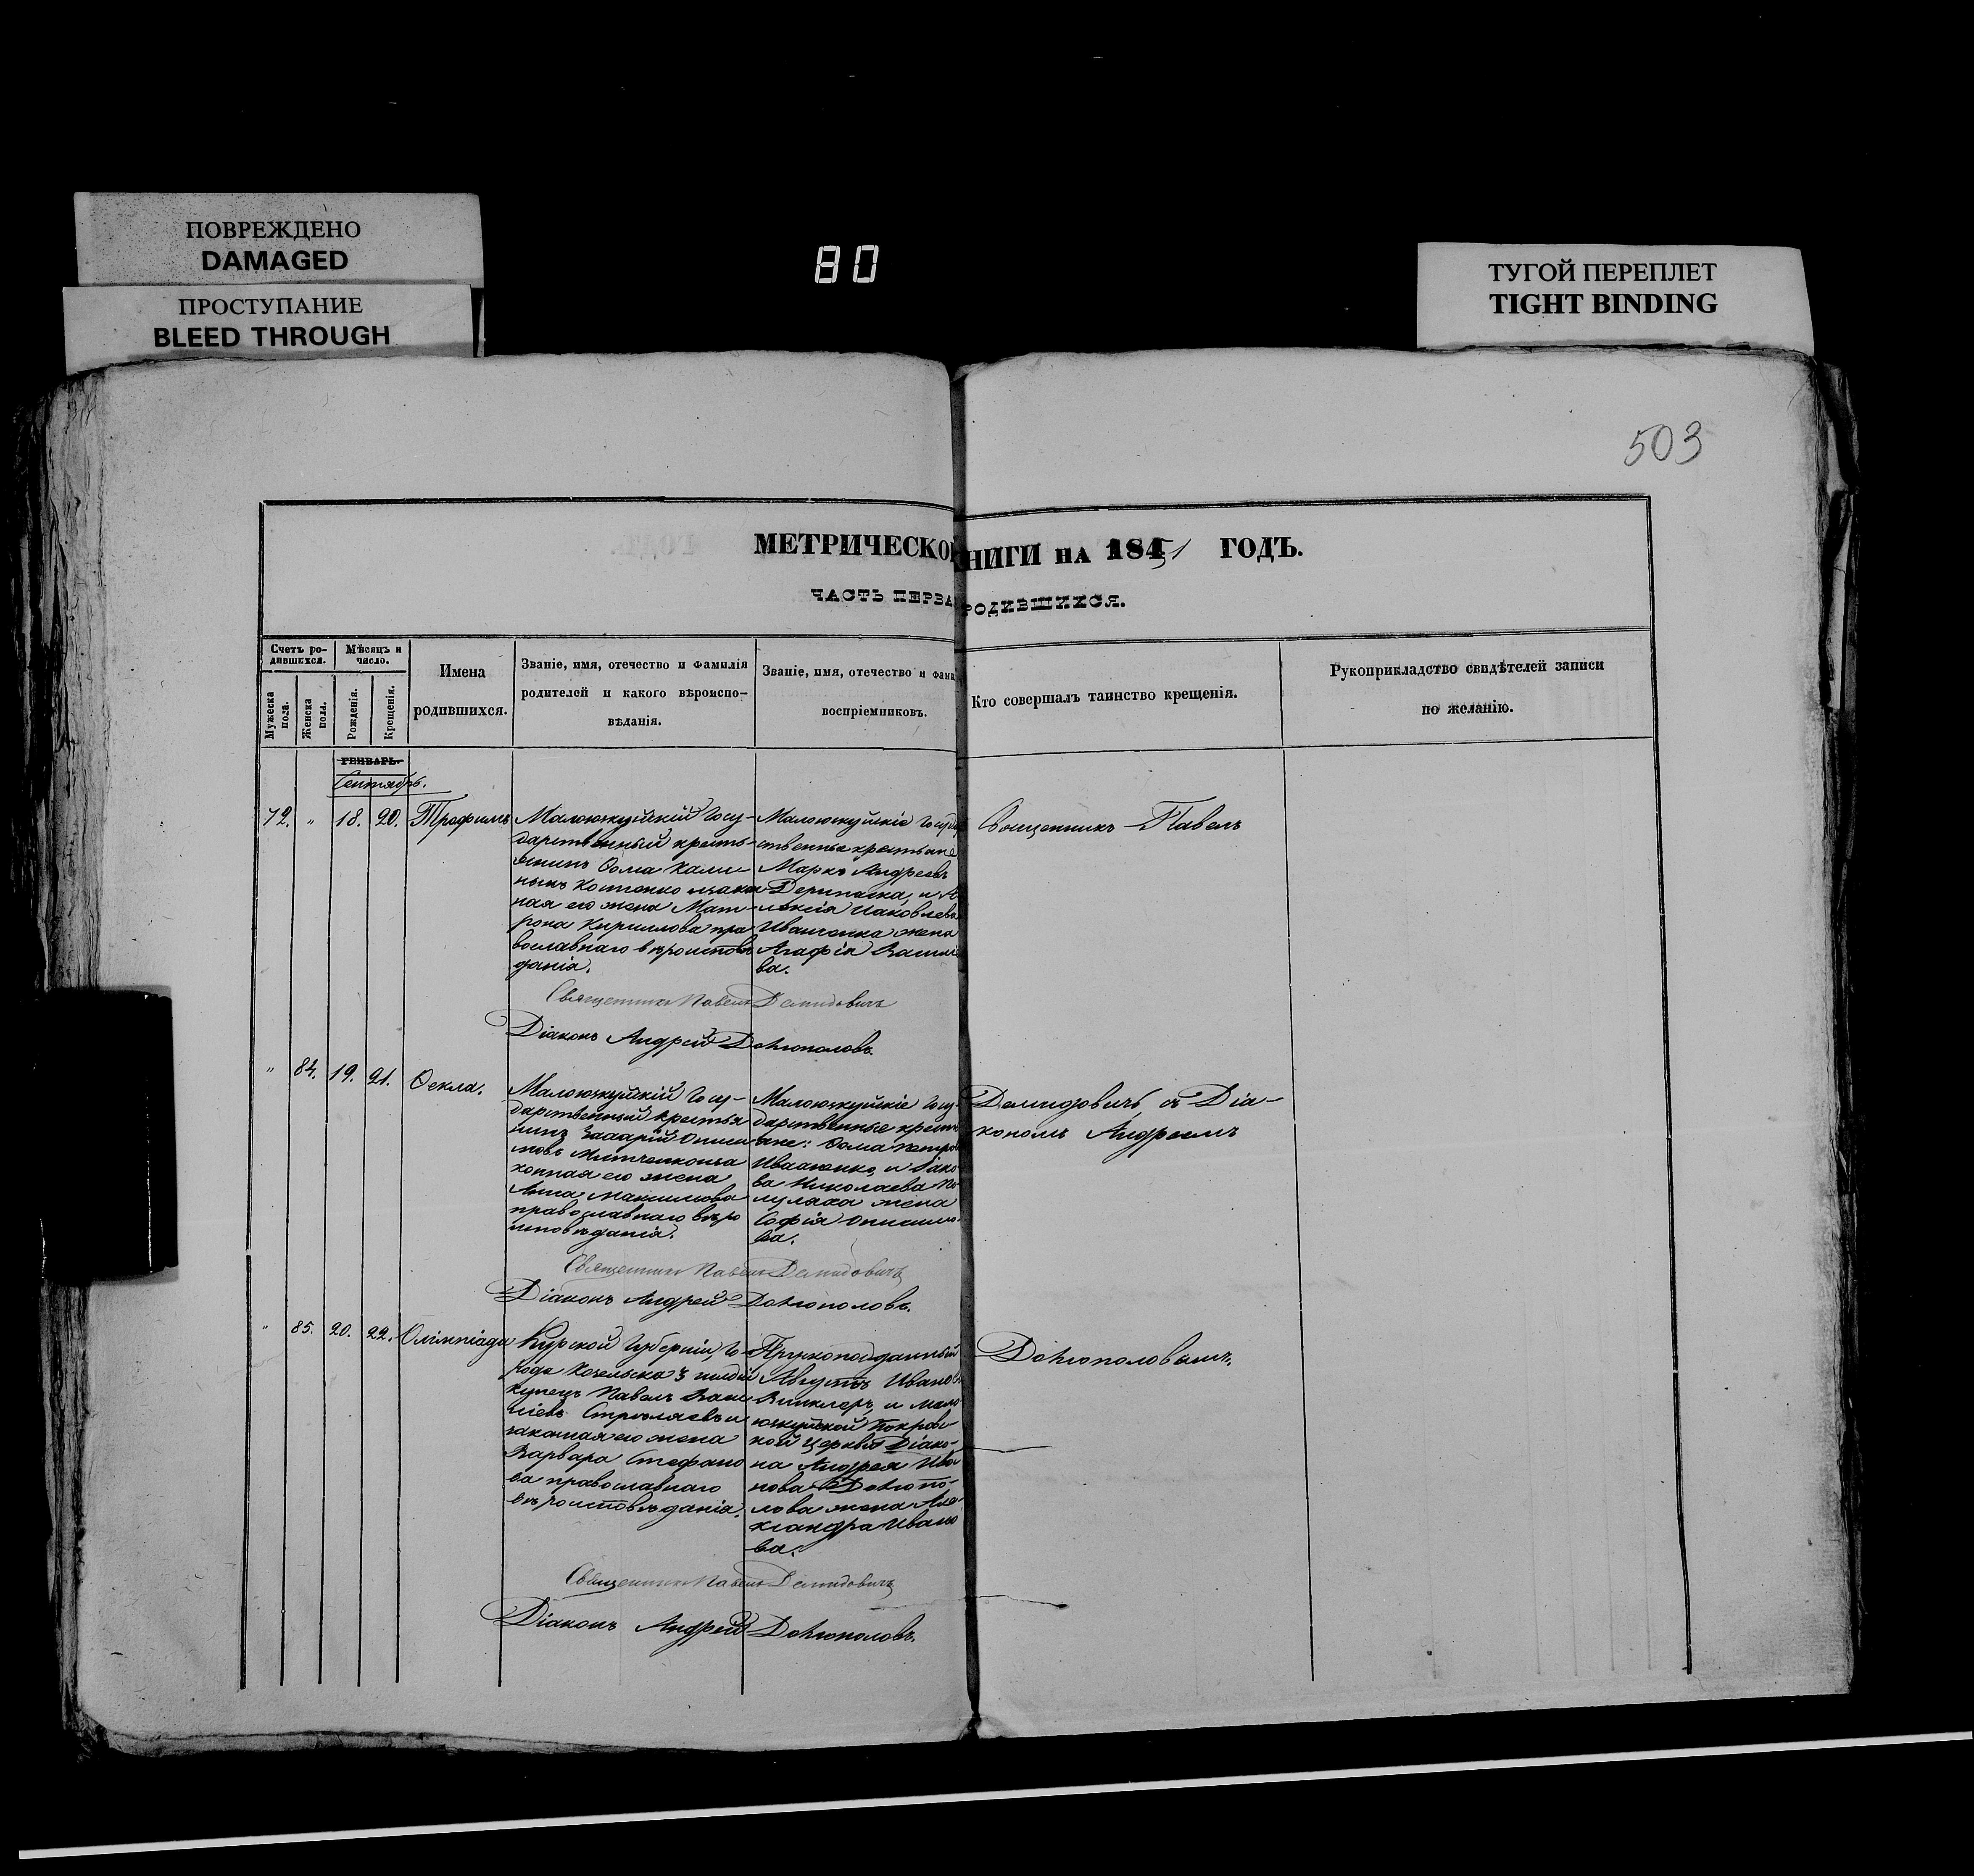 ПОВРЕЖДЕНО
DAMAGED
ПРОСТУПАНИЕ
BLEED THROUGH
80
ТУГОЙ ПЕРЕПЛЕТ
TIGHT BINDING
503
МЕТРИЧЕСКО НИГИ НА 1851 ГОДЪ.
ЧАСТЬ ПЕРВА РОДИВШИХСЯ.
Счетъ ро-
дившихся.
Мѣсяцъ и
число.
Мужеска
пола.
Женска
пола.
Рожденія.
Крещенія.
Имена
родившихся.
Званіе, имя, отечество и фамилія
родителей и какого вѣроиспо-
вѣданія.
Званіе, имя, отечество и фами
воспріемниковъ.
Кто совершалъ таинство крещенія.
Рукоприкладство свидѣтелей записи
по желанію.
ГЕНВАРЬ
Сентябрь.
72. " 18. 20. Трофимъ
Малоюжуйскій Госу-
дарственный кресть-
янинъ Ѳома Кали-
ныхъ Костенко закон
ная его жена Мат-
рона Кириллова пра
вославнаго вѣроисповѣ
данія.
Малоюжуйскіе Госуда
ственные крестьяне
Маркъ Андреевъ
Дерипаска, и А
лексія Иаковлева
Иванченка жена
Агафія Васил
ва.
Священникъ Павелъ
Священникъ Павелъ Демидовичъ
Діаконъ Андрей Доброполовъ.
" 84. 19. 21. Ѳекла.
Малоюжуйскій Госу-
дарственный крестья
нинъ Захарій Ониси
мовъ за
конная его жена
Анна Максимова
православнаго вѣро
исповѣданія.
Малоюжуйскіе Госу-
дарственные крест
яне: Ѳома Петро
Иваненко, и Іако
ва Николаева По
лулаха жена
Софія Онисимо
ва.
Демидовичъ, съ Діа-
кономъ Андреемъ
Священникъ Павелъ Демидовичъ
Діаконъ Андрей Доброполовъ.
" 85. 20. 22. Олимпіада
Курской Губерніи, Го
рода Козельска 3 гилдіи
Купецъ Павелъ Васи
ліевъ и
законная его жена
Варвара Стефано
ва православнаго
вѣроисповѣданія.
Августъ Иванов
Винклеръ, и Мало
южуйской Покров
ной Церквѣ Діако-
на Андрея Ива
нова Добропо-
лова жена Але
ксандра Ивано
ва.
Доброполовымъ.
Священникъ Павелъ Демидовичъ
Діаконъ Андрей Доброполовъ.